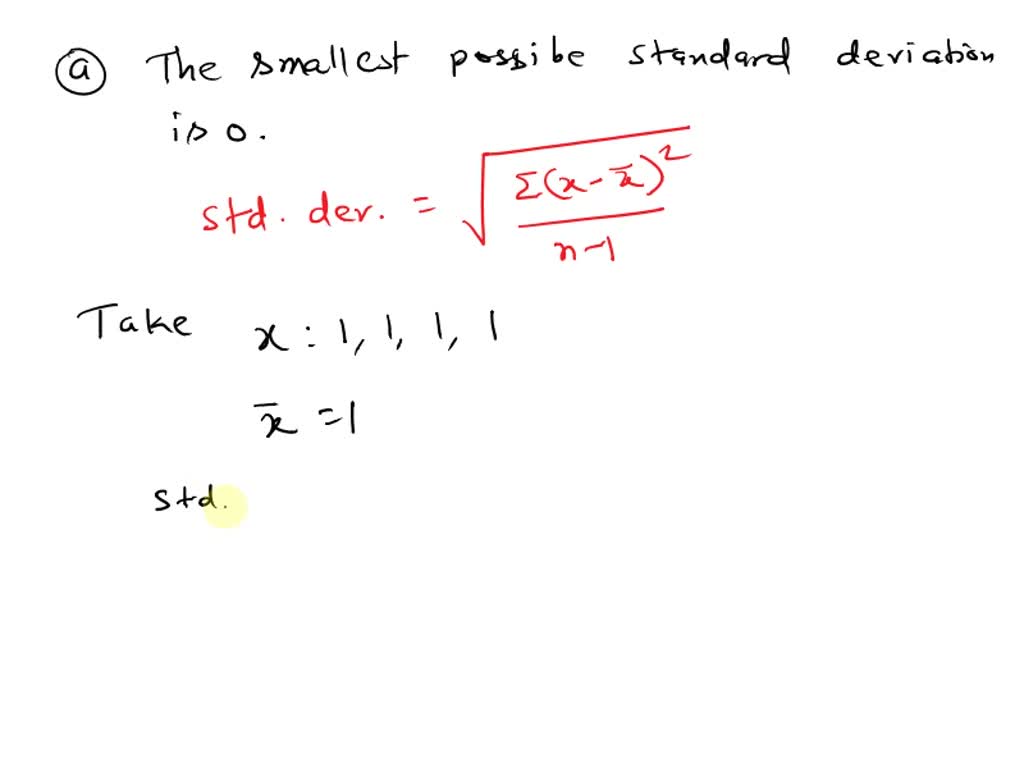 ⓐ The smallest possibe standard deviation
is 0.
std. dev. = √(Σ(x-x̄)²/(n-1))
Take x : 1, 1, 1, 1
x̄ =1
std.